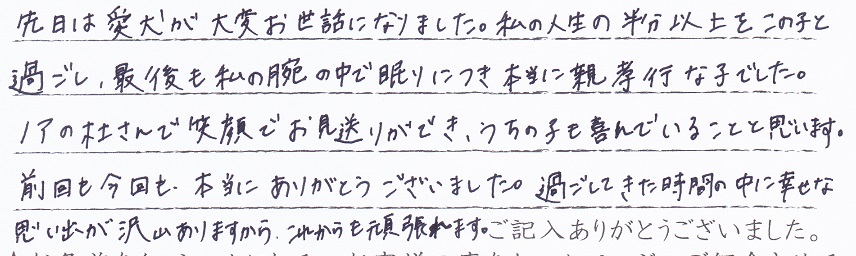 先日は愛犬が大変お世話になりました。私の人生の半分以上をこの子と
過ごし、最後も私の腕の中で眠りにつき本当に親孝行な子でした。
ノアの杜さんで笑顔でお見送りができ、うちの子も喜んでいることと思います。
前回も今回も、本当にありがとうございました。過ごしてきた時間の中に幸せな
思い出が沢山ありますから、これからも頑張れます。ご記入ありがとうございました。